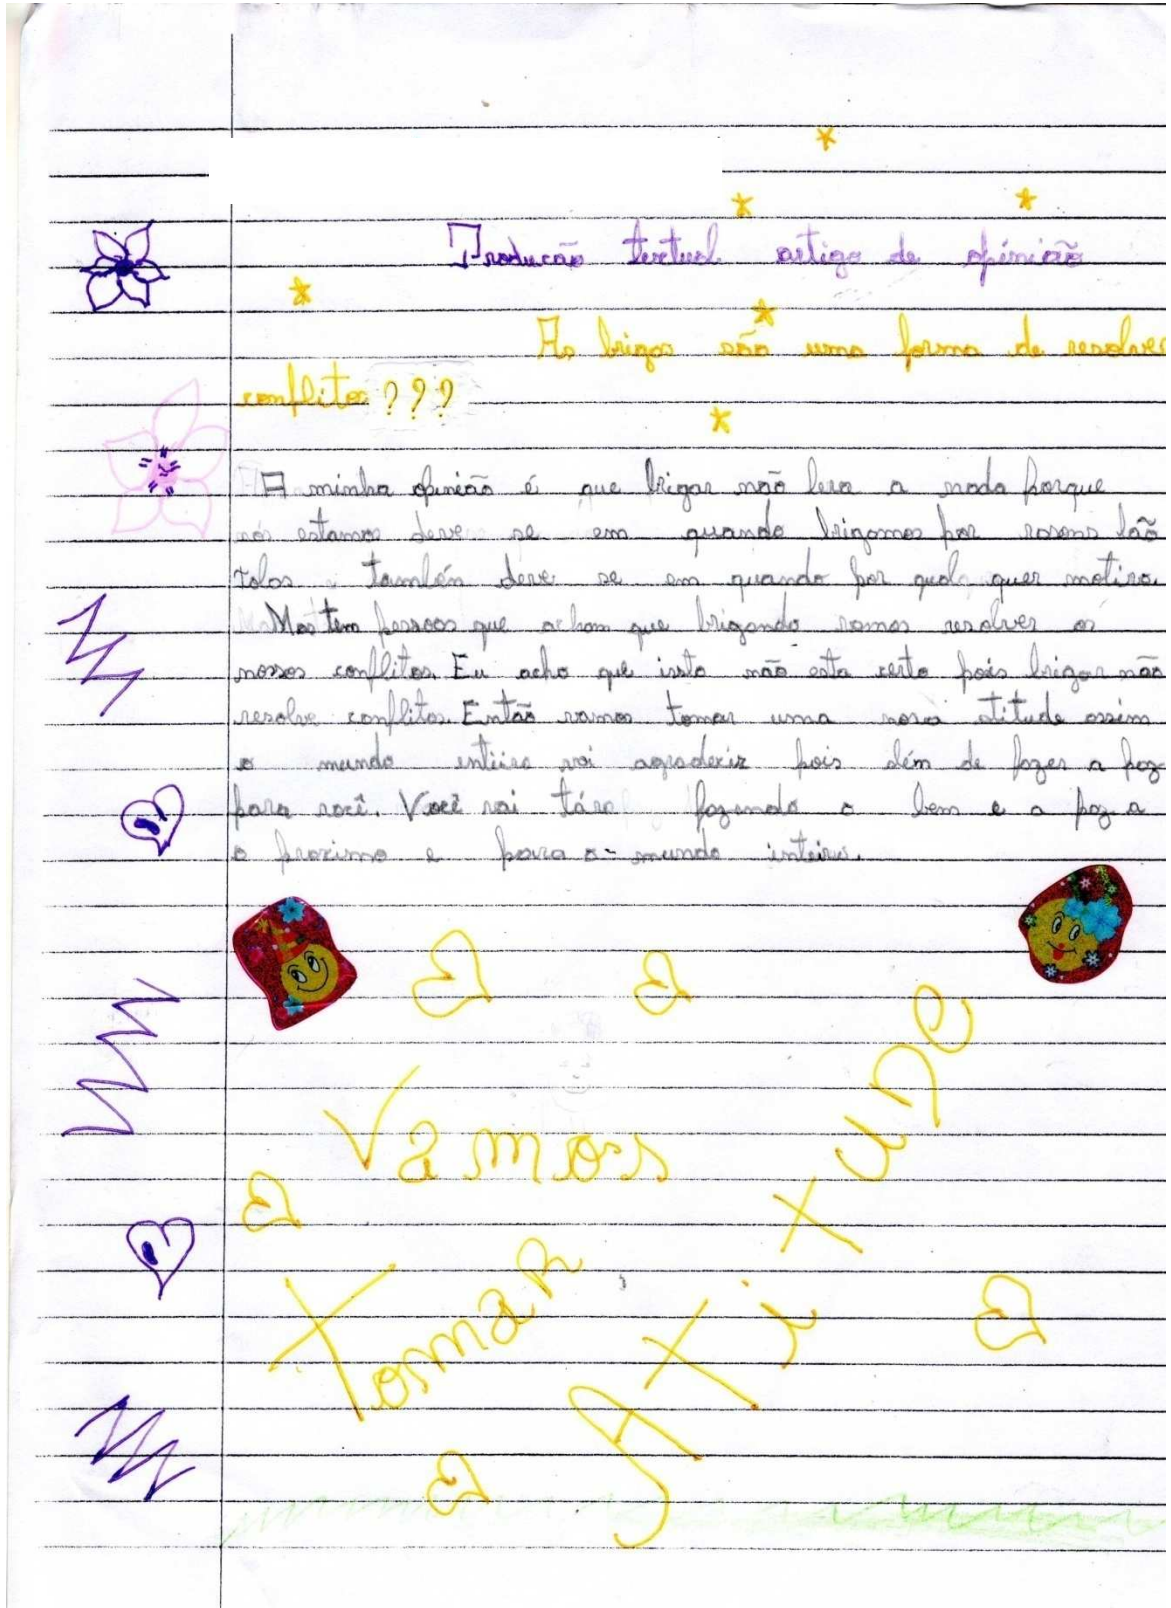 Producão textual artigo de opinião
As brigas são uma forma de resolver
conflitos ???
A minha opinião é que brigar não leva a nada porque
nós estamos deve se em quando brigamos por rasons tão
tolas tambén deve se em quando por qual quer motivo.
Mas tem pessoas que acham que brigando vamos resolver os
nossos conflitos. Eu acho que issto não esta certo pois brigar não
resolve conflitos. Então vamos tomar uma nova atitude assim
o mundo inteiro vai agradexir pois além de fazer a paz
para você. Você vai tára fazendo o bem e a paz a
o proximo e para o mundo inteiro.
Vamos
Tomar
Atitude